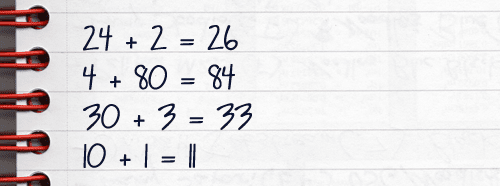 24 + 2 = 26
4 + 80 = 84
30 + 3 = 33
10 + 1 = 11